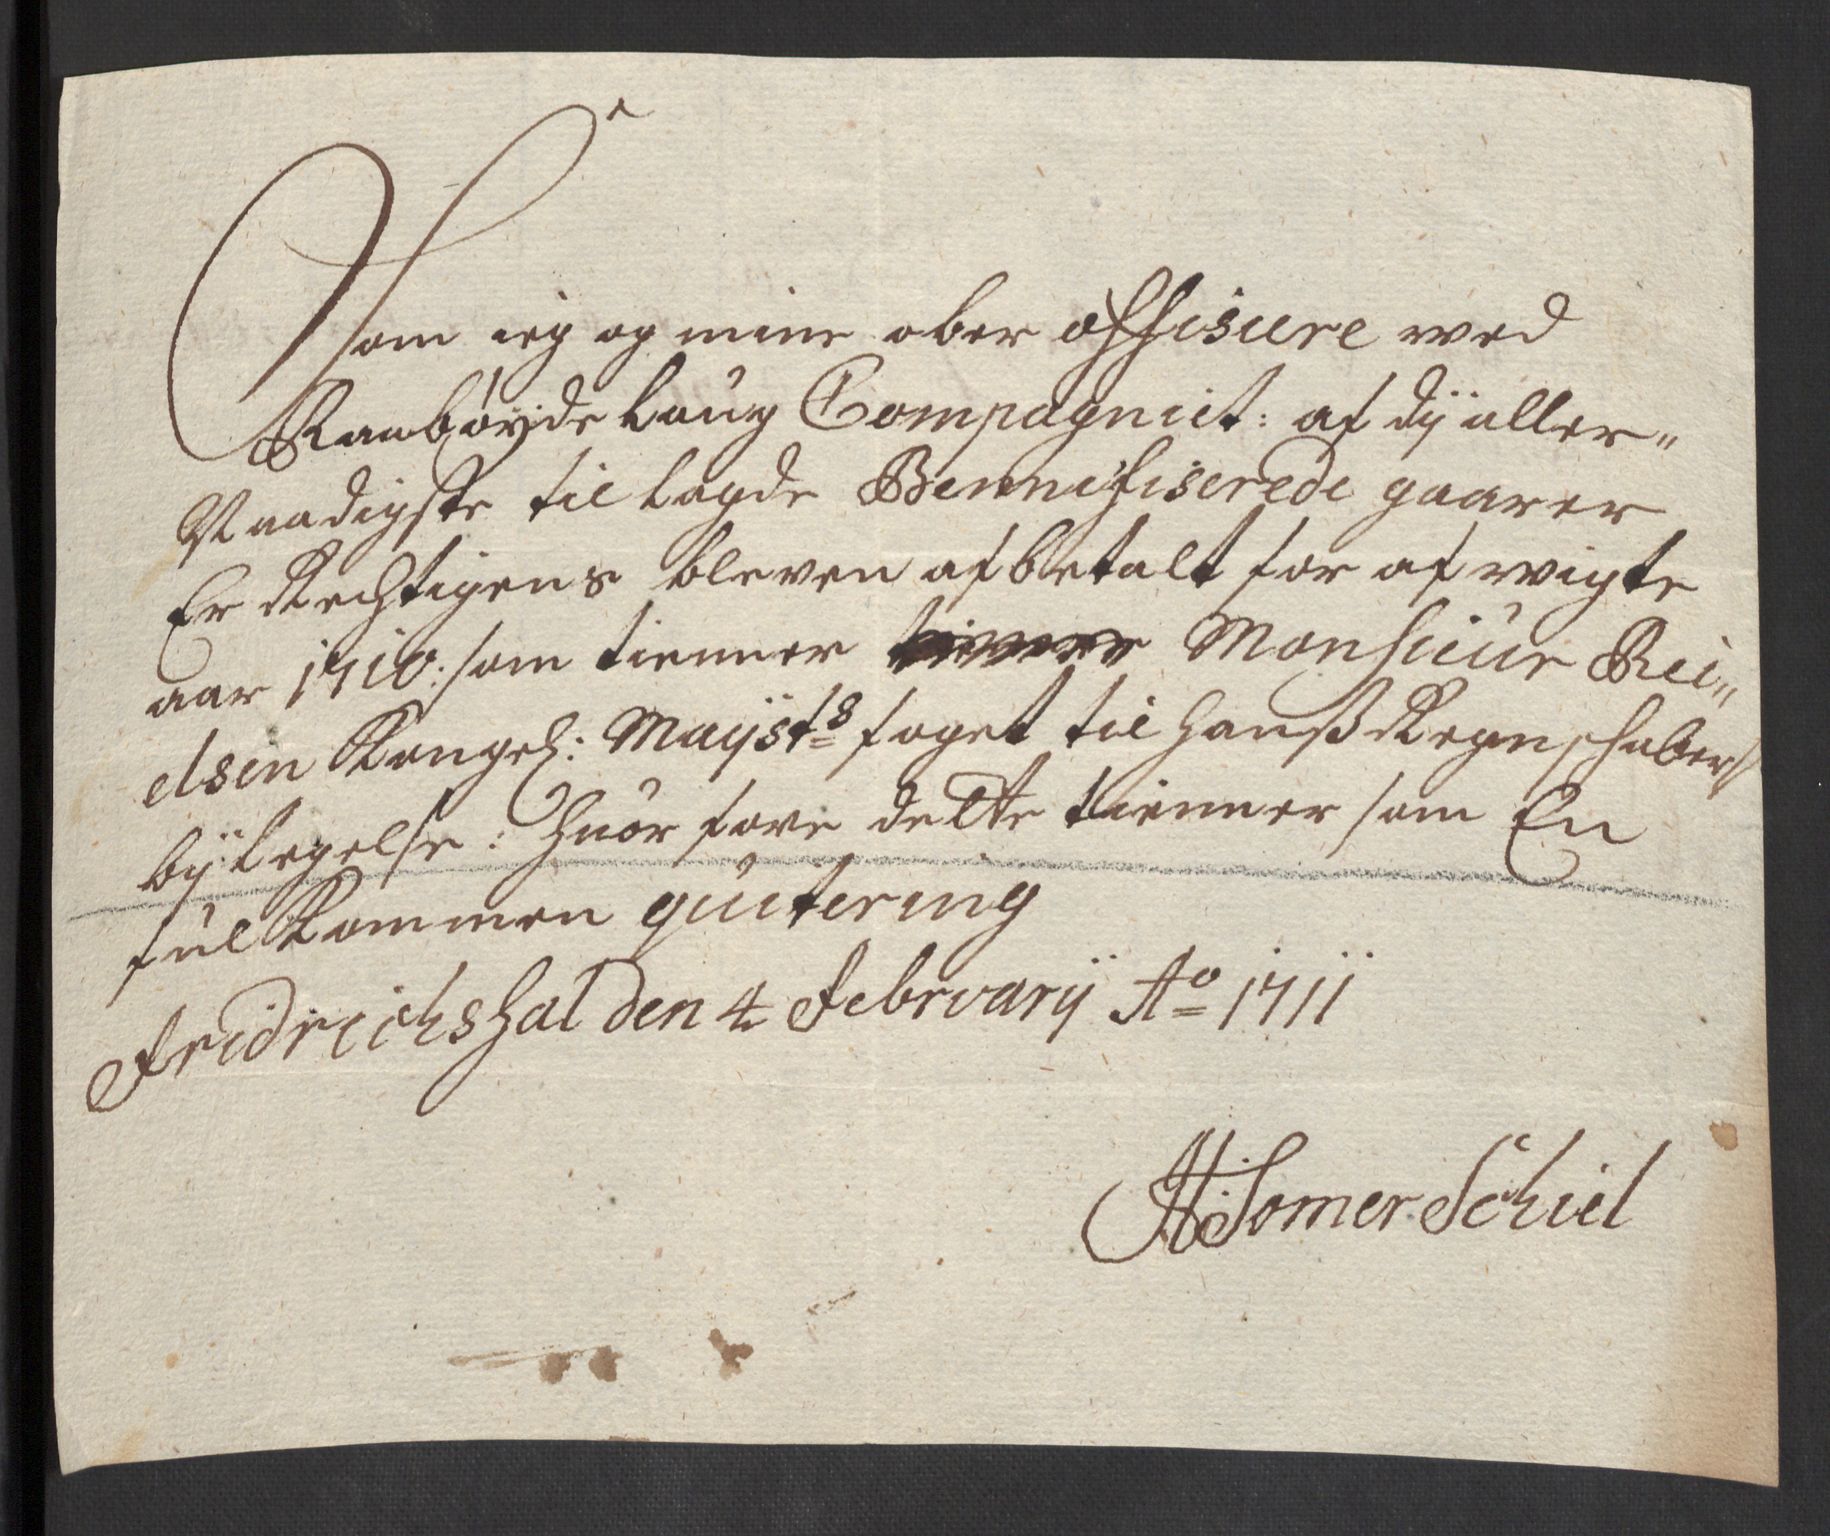 Som ieg og mine ober offisiere wed
Raabøyde laug Compagniet: af dÿ aller"
Naadigste til lagde Bennifiserede gaarer
Er Rechtigens bleven af betalt for af wigte
aar 1710: som tienner Monsieur Rei"
elsen Kongel: Mayst.s foget til hanß Regenschaber//
bÿlegelse: huor fore dette tienner som En
fulkommen quitering
Fridrichshal den 4 Februarÿ Ao 1711
H Somer Schiel